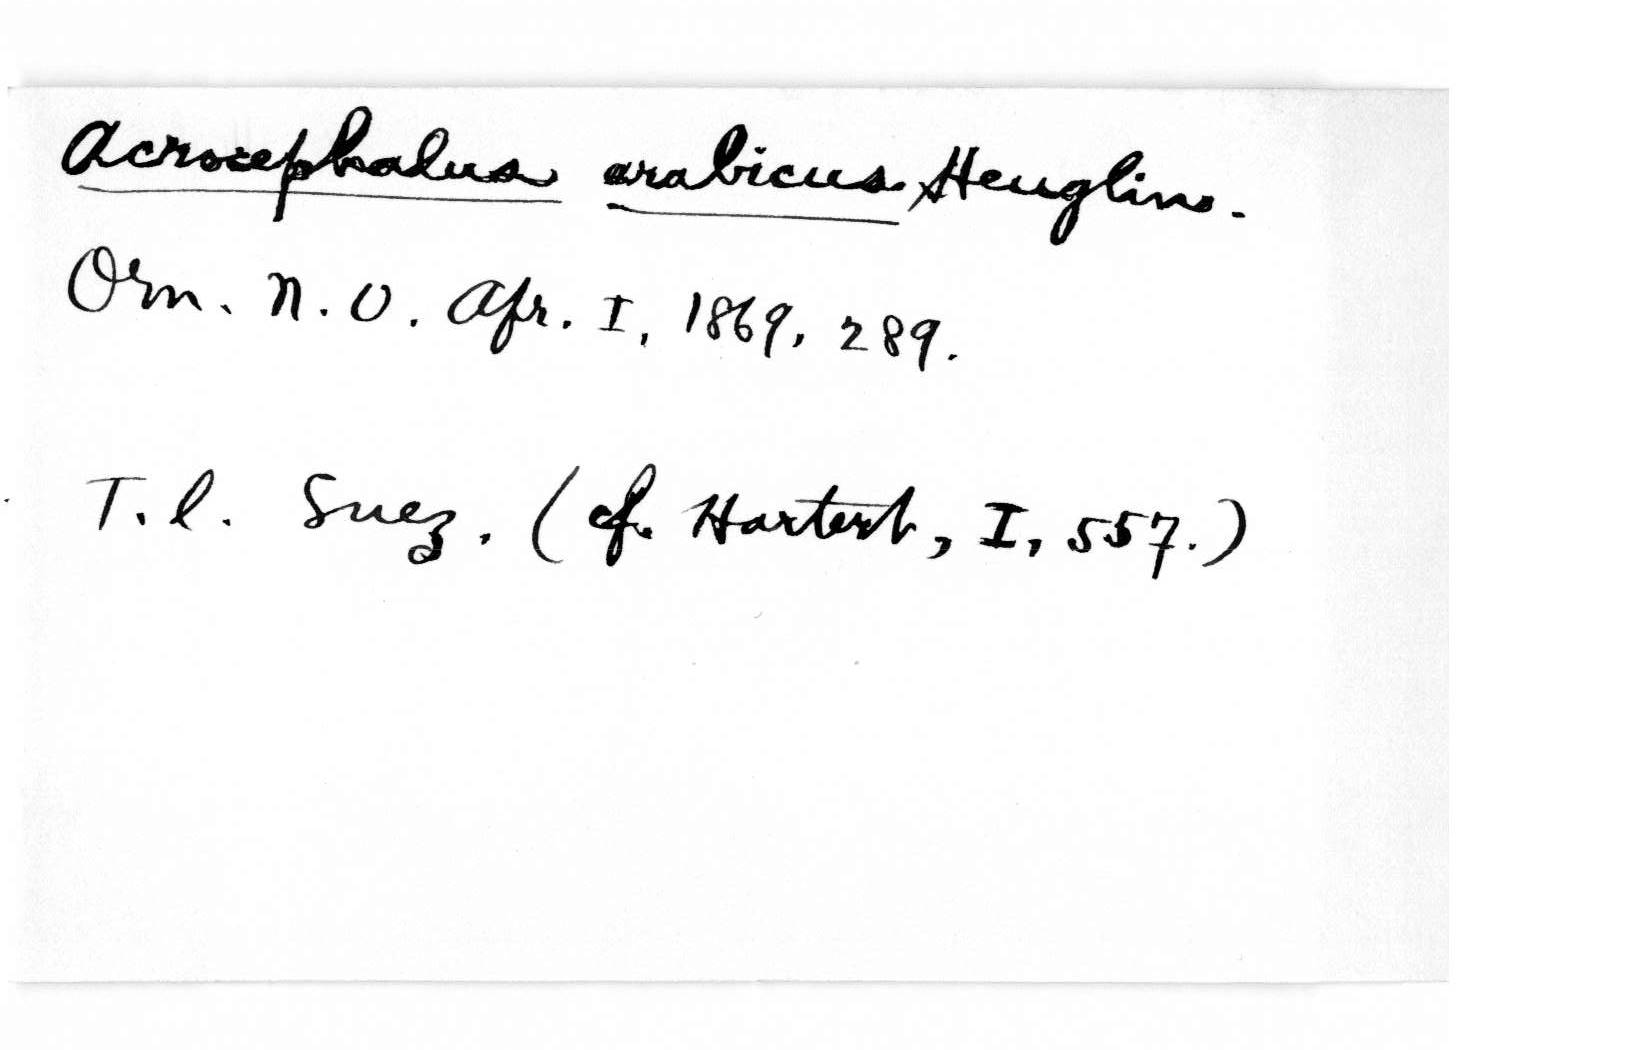 Acrocephalus arabicus Heuglin.
Orn. N. O. Afr. I, 1869, 289.
T. l. Suez. (cf. Hartert, I, 557.)